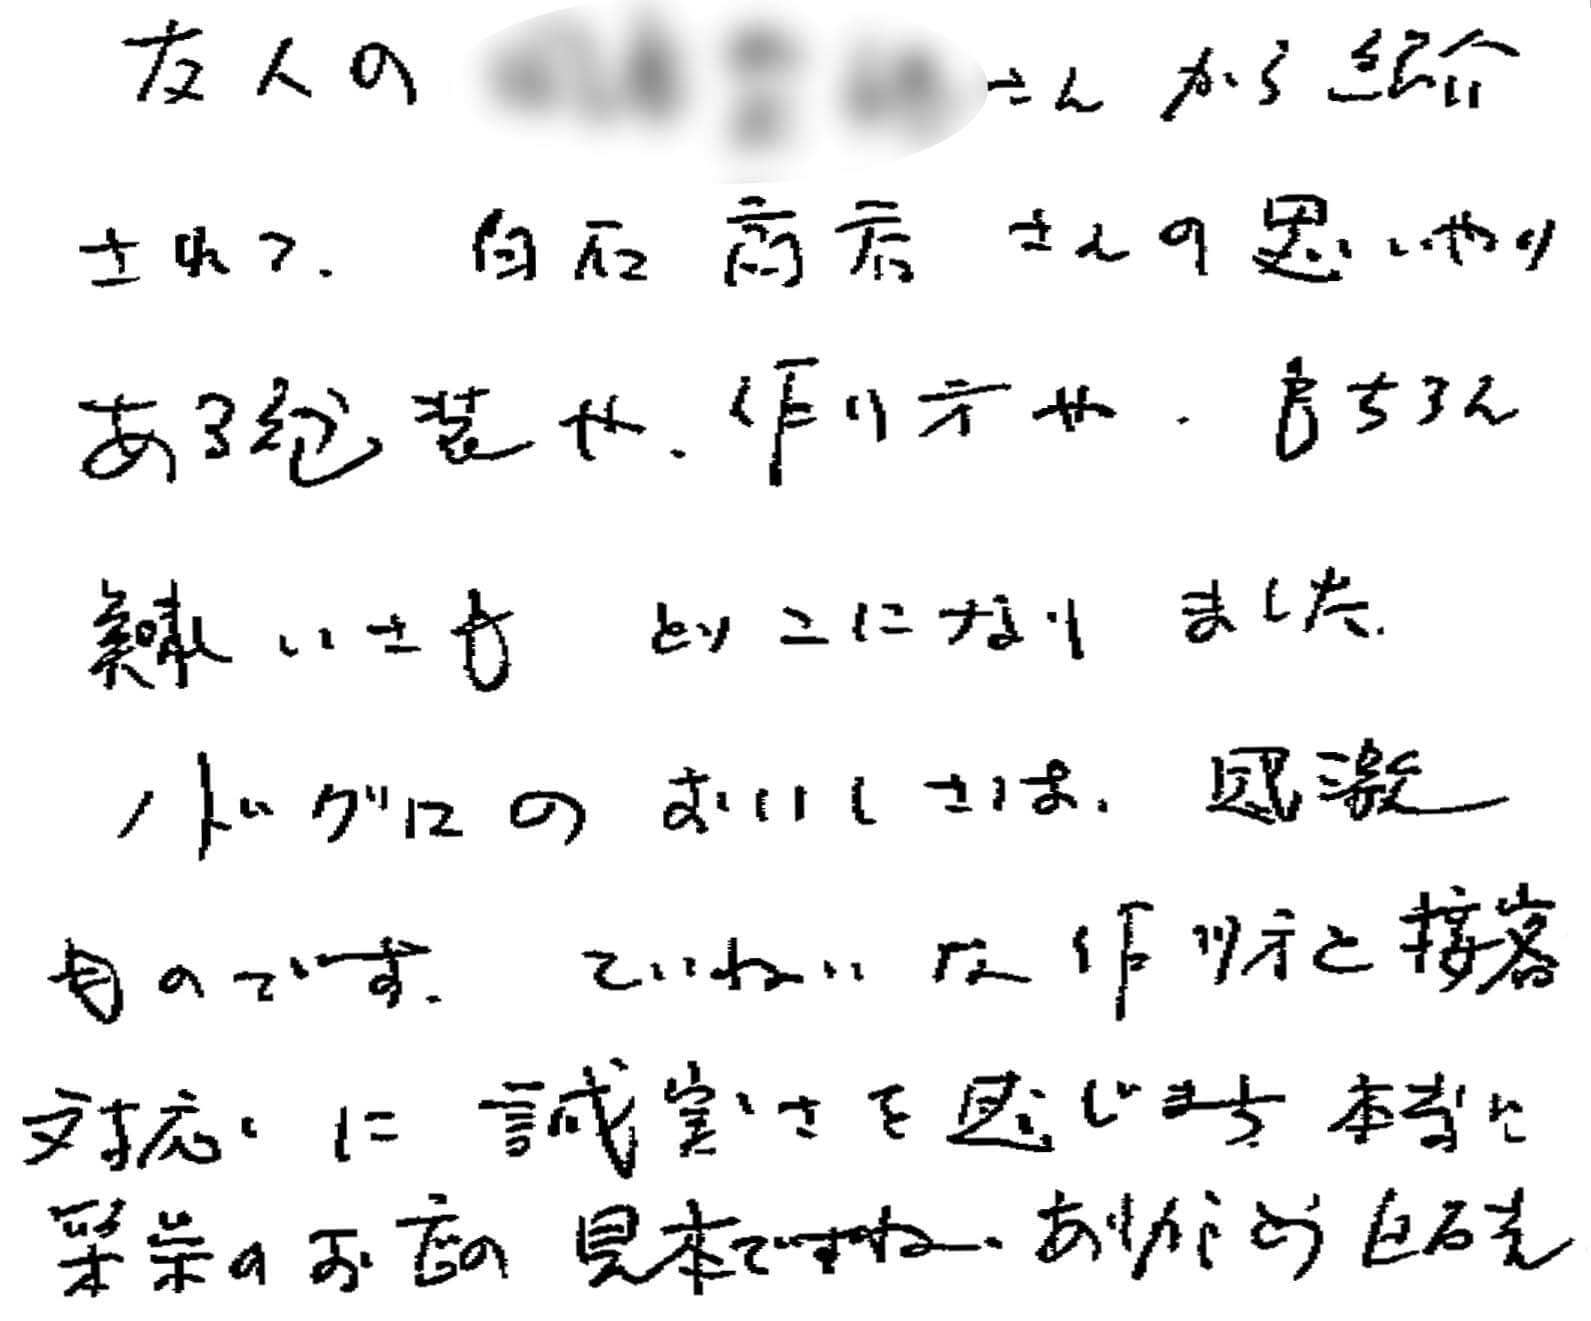 友人の さんから紹介
されて、白石商店さんの思いやり
ある包装や、作り方や、もちろん
美味いさもとりこになりました。
ハトムギ のおいしさは、感激
ものです。ていねいな作り方と接客
対応いに誠実さを感じます 本当に
のお店の見本ですね。ありがとう 白石さん